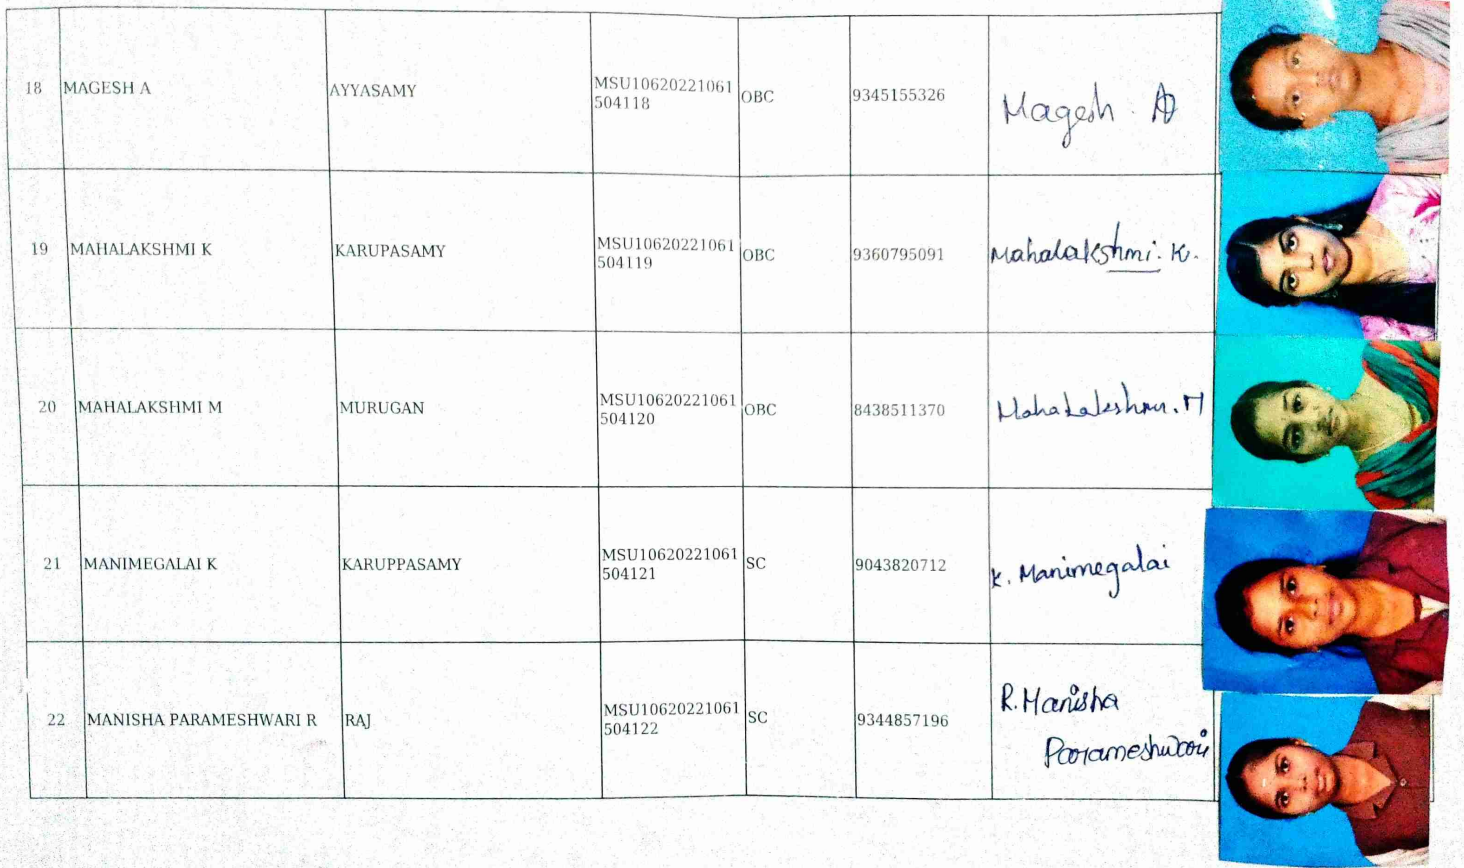 18 MAGESH A AYYASAMY MSU10620221061 OBC 9345155326 Magesh . A
504118
19 MAHALAKSHMI K KARUPASAMY MSU10620221061 OBC 9360795091 Mahalakshmi. K.
504119
20 MAHALAKSHMI M MURUGAN MSU10620221061 OBC 8438511370 Mahalakshmi. M
504120
21 MANIMEGALAI K KARUPPASAMY MSU10620221061 SC 9043820712 K. Manimegalai
504121
22 MANISHA PARAMESHWARI R RAJ MSU10620221061 SC 9344857196 R. Manisha
504122 Parameshwari